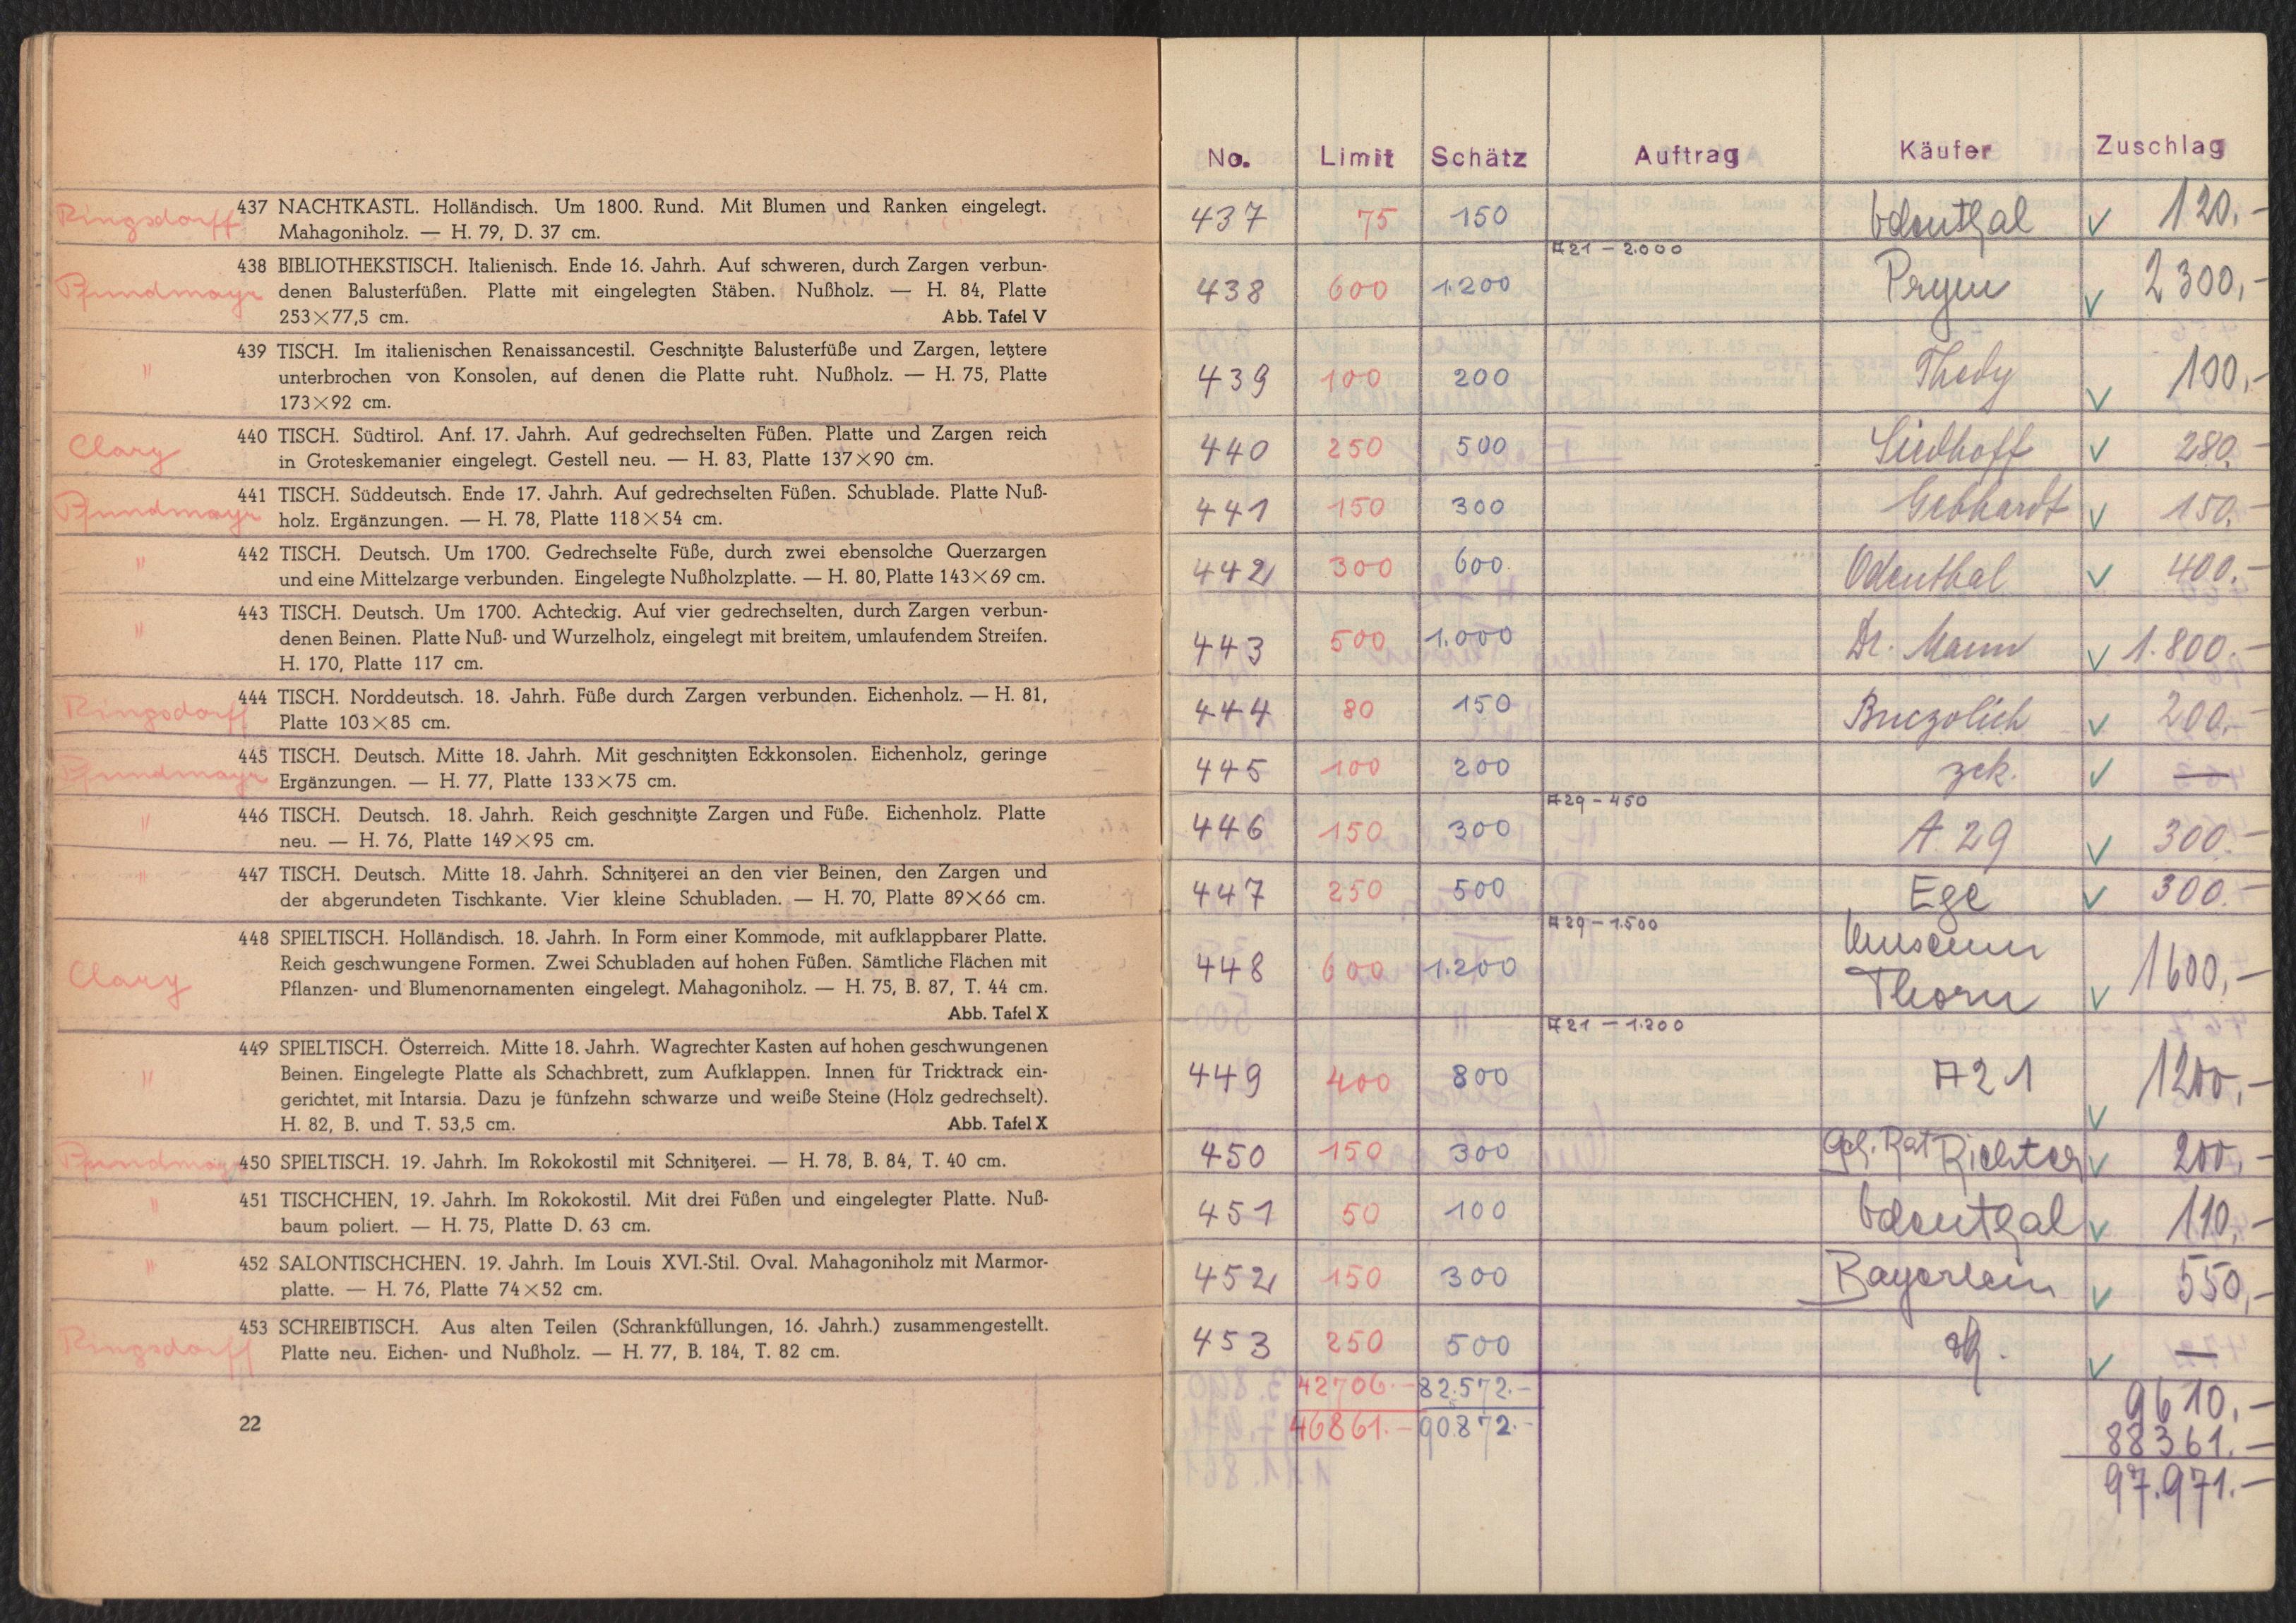 Ringsdorff
437 NACHTKASTL. Holländisch. Um 1800. Rund. Mit Blumen und Ranken eingelegt.
Mahagoniholz. — H. 79, D. 37 cm.
Pfundmayr
438 BIBLIOTHEKSTISCH. Italienisch. Ende 16. Jahrh. Auf schweren, durch Zargen verbun-
denen Balusterfüßen. Platte mit eingelegten Stäben. Nußholz. — H. 84, Platte
253×77,5 cm. Abb. Tafel V
" 439 TISCH. Im italienischen Renaissancestil. Geschnitzte Balusterfüße und Zargen, letztere
unterbrochen von Konsolen, auf denen die Platte ruht. Nußholz. — H. 75, Platte
173×92 cm.
Clary
440 TISCH. Südtirol. Anf. 17. Jahrh. Auf gedrechselten Füßen. Platte und Zargen reich
in Groteskemanier eingelegt. Gestell neu. — H. 83, Platte 137×90 cm.
Pfundmayr
441 TISCH. Süddeutsch. Ende 17. Jahrh. Auf gedrechselten Füßen. Schublade. Platte Nuß-
holz. Ergänzungen. — H. 78, Platte 118×54 cm.
" 442 TISCH. Deutsch. Um 1700. Gedrechselte Füße, durch zwei ebensolche Querzargen
und eine Mittelzarge verbunden. Eingelegte Nußholzplatte. — H. 80, Platte 143×69 cm.
" 443 TISCH. Deutsch. Um 1700. Achteckig. Auf vier gedrechselten, durch Zargen verbun-
denen Beinen. Platte Nuß- und Wurzelholz, eingelegt mit breitem, umlaufendem Streifen.
H. 170, Platte 117 cm.
Ringsdorff
444 TISCH. Norddeutsch. 18. Jahrh. Füße durch Zargen verbunden. Eichenholz. — H. 81,
Platte 103×85 cm.
Pfundmayr
445 TISCH. Deutsch. Mitte 18. Jahrh. Mit geschnitzten Eckkonsolen. Eichenholz, geringe
Ergänzungen. — H. 77, Platte 133×75 cm.
" 446 TISCH. Deutsch. 18. Jahrh. Reich geschnitzte Zargen und Füße. Eichenholz. Platte
neu. — H. 76, Platte 149×95 cm.
" 447 TISCH. Deutsch. Mitte 18. Jahrh. Schnitzerei an den vier Beinen, den Zargen und
der abgerundeten Tischkante. Vier kleine Schubladen. — H. 70, Platte 89×66 cm.
Clary
448 SPIELTISCH. Holländisch. 18. Jahrh. In Form einer Kommode, mit aufklappbarer Platte.
Reich geschwungene Formen. Zwei Schubladen auf hohen Füßen. Sämtliche Flächen mit
Pflanzen- und Blumenornamenten eingelegt. Mahagoniholz. — H. 75, B. 87, T. 44 cm.
Abb. Tafel X
" 449 SPIELTISCH. Österreich. Mitte 18. Jahrh. Wagrechter Kasten auf hohen geschwungenen
Beinen. Eingelegte Platte als Schachbrett, zum Aufklappen. Innen für Tricktrack ein-
gerichtet, mit Intarsia. Dazu je fünfzehn schwarze und weiße Steine (Holz gedrechselt).
H. 82, B. und T. 53,5 cm. Abb. Tafel X
Pfundmayr
450 SPIELTISCH. 19. Jahrh. Im Rokokostil mit Schnitzerei. — H. 78, B. 84, T. 40 cm.
" 451 TISCHCHEN, 19. Jahrh. Im Rokokostil. Mit drei Füßen und eingelegter Platte. Nuß-
baum poliert. — H. 75, Platte D. 63 cm.
" 452 SALONTISCHCHEN. 19. Jahrh. Im Louis XVI.-Stil. Oval. Mahagoniholz mit Marmor-
platte. — H. 76, Platte 74×52 cm.
Ringsdorff
453 SCHREIBTISCH. Aus alten Teilen (Schrankfüllungen, 16. Jahrh.) zusammengestellt.
Platte neu. Eichen- und Nußholz. — H. 77, B. 184, T. 82 cm.
22
No. Limit Schätz Auftrag Käufer Zuschlag
437 75 150 Odenthal ✓ 120,-
A21 - 2.000
438 600 1.200 Prym ✓ 2300,-
439 100 200 Thedy ✓ 100,-
440 250 500 Siedhoff ✓ 280.-
441 150 300 Gebhardt ✓ 150.-
442 300 600. Odenthal ✓ 400.-
443 500 1.000 Dr. Mann ✓ 1.800.-
444 80 150 Buczolich ✓ 200.-
445 100 200 zck. ✓ —
A29 - 450
446 150 300 A. 29 ✓ 300.-
447 250 500 Ege ✓ 300.-
A29 - 1.500
448 600 1.200 Museum
Thorn ✓ 1600,-
A21 - 1.200
449 400 800 A21 ✓ 1200,-
450 150 300 Geh. Rat Richter ✓ 200,-
451 50 100 Odenthal ✓ 110,-
452 150 300 Bayerlein ✓ 550,-
453 250 500 ✓ —
42706.- 82.572.- 9610,-
46861.- 90.872.- 88361.-
97.971.-